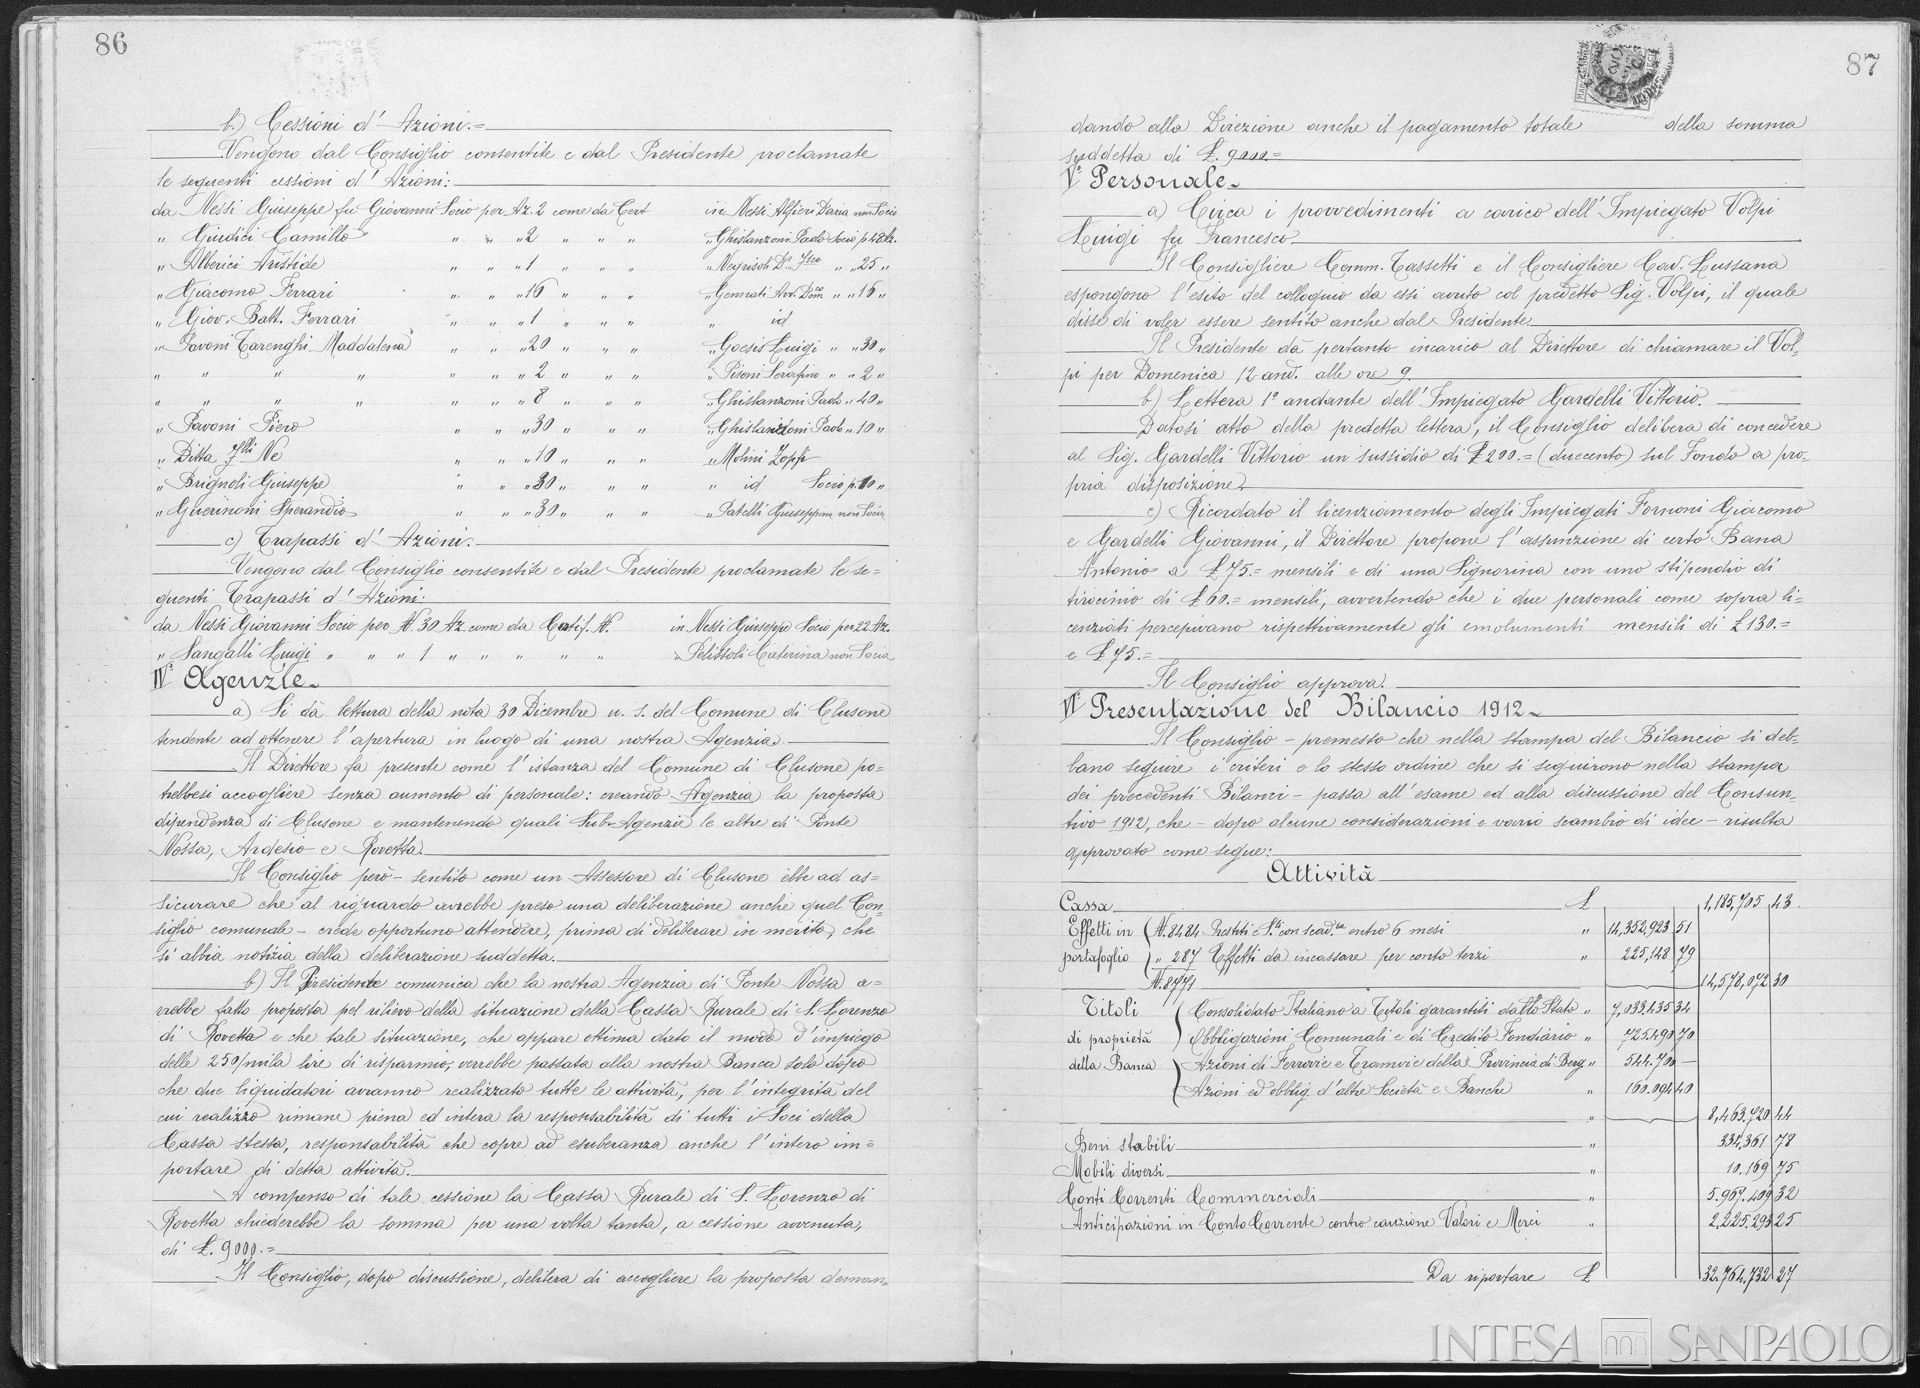 86
b.) Cessioni d'Azioni.=
Vengono dal Consiglio consentite e dal Presidente proclamate
le seguenti cessioni d'Azioni:
da Nessi Giuseppe fu Giovanni Socio per Az. 2 come da Cert in Nessi Alfieri Daria non Socia
" Giudici Camillo " " " 2 " " " " Ghislanzoni Paolo Socio p 48 Az.
" Alberici Aristide " " " 1 " " " " Negrisoli Dr. Fsco " " 25 "
" Giacomo Ferrari " " " 16 " " " " Gennati Avv. Domco " " 16 "
" Giov. Batt. Ferrari " " " 1 " " " " id
" Pavoni Tarenghi Maddalena " " " 20 " " " " Goesis Luigi " " 30 "
" " " " " " " 2 " " " " Pisoni Serafino " " 2 "
" " " " " " " 8 " " " " Ghislanzoni Paolo " 40 "
" Pavoni Piero " " " 30 " " " " Ghislanzoni Paolo " 10 "
" Ditta Flli Ne " " " 10 " " " " Molini Zopfi
" Brignoli Giuseppe " " " 30 " " " " id Socio p. 10 "
" Guerinoni Sperandio " " " 30 " " " " Patelli Giuseppina non Socia
c) Trapassi d'Azioni.
Vengono dal Consiglio consentite e dal Presidente proclamate le se=
guenti Trapassi d'Azioni:
da Nessi Giovanni Socio per N. 30 Az. come da Certif. N. in Nessi Giuseppe Socio per 22 Az.
" Sangalli Luigi " " " 1 " " " " " " Pelissoli Caterina non Socia
IV° Agenzie.
a) Si dà lettura della nota 30 Dicembre u. s. del Comune di Clusone
tendente ad ottenere l'apertura in luogo di una nostra Agenzia.
Il Direttore fa presente come l'istanza del Comune di Clusone po=
trebbesi accogliere senza aumento di personale: creando Agenzia la proposta
dipendenza di Clusone e mantenendo quali Sub-Agenzie le altre di Ponte
Nossa, Ardesio e Rovetta.
Il Consiglio però - sentito come un Assessore di Clusone ebbe ad as=
sicurare che al riguardo avrebbe preso una deliberazione anche quel Con=
siglio comunale - crede opportuno attendere, prima di deliberare in merito, che
si abbia notizia della deliberazione suddetta.
b) Il Presidente comunica che la nostra Agenzia di Ponte Nossa a=
vrebbe fatto proposta pel rilievo della situazione della Cassa Rurale di S. Lorenzo
di Rovetta e che tale situazione, che appare ottima dato il modo d'impiego
delle 250/mila lire di risparmio, verrebbe passata alla nostra Banca solo dopo
che due liquidatori avranno realizzato tutte le attività, per l'integrità del
cui realizzo rimane piena ed intera la responsabilità di tutti i Soci della
Cassa stessa, responsabilità che copre ad esuberanza anche l'intero im=
portare di detta attività.
A compenso di tale cessione la Cassa Rurale di S. Lorenzo di
Rovetta chiederebbe la somma per una volta tanta, a cessione avvenuta,
di £. 9000.=
Il Consiglio, dopo discussione, delibera di accogliere la proposta deman=
87
dando alla Direzione anche il pagamento totale della somma
suddetta di £. 9000.=
V° Personale.
a) Circa i provvedimenti a carico dell'Impiegato Volpi
Luigi fu Francesco.
Il Consigliere Comm. Tassetti e il Consigliere Cav. Lussana
espongono l'esito del colloquio da essi avuto col predetto Sig. Volpi, il quale
disse di voler essere sentito anche dal Presidente.
Il Presidente dà pertanto incarico al Direttore di chiamare il Vol=
pi per Domenica 12 and. alle ore 9.
b) Lettera 1° andante dell'Impiegato Gardelli Vittorio.
Datosi atto della predetta lettera, il Consiglio delibera di concedere
al Sig. Gardelli Vittorio un sussidio di £ 200.= (duecento) sul Fondo a pro=
pria disposizione.
c) Ricordato il licenziamento degli Impiegati Fornoni Giacomo
e Gardelli Giovanni, il Direttore propone l'assunzione di certo Bana
Antonio a £ 75.= mensili e di una Signorina con uno stipendio di
tirocinio di £ 60.= mensili, avvertendo che i due personali come sopra li=
cenziati percepivano rispettivamente gli emolumenti mensili di £ 130.=
e £ 75.=
Il Consiglio approva.
VI° Presentazione del Bilancio 1912.
Il Consiglio - premesso che nella stampa del Bilancio si deb=
bano seguire i criteri e lo stesso ordine che si seguirono nella stampa
dei precedenti Bilanci - passa all'esame ed alla discussione del Consun=
tivo 1912, che - dopo alcune considerazioni e vario scambio di idee - risulta
approvato come segue:
Attività
Cassa £ 1,185,705 43
Effetti in N. 8484 Prestiti e Sti con scadza entro 6 mesi " 14,352,923 51
portafoglio " 287 Effetti da incassare per conto terzi " 225,148 79
N. 8771 14,578,072 30
Titoli Consolidato Italiano e Titoli garantiti dallo Stato " 7,033,435 34
di proprietà Obbligazioni Comunali e di Credito Fondiario " 725.490 70
della Banca Azioni di Ferrovie e Tramvie della Provincia di Berg. " 544.700 -
Azioni ed obblig. d'altre Società e Banche " 160.094 40
" 8,463.720 44
Beni stabili " 334,361 78
Mobili diversi " 10.169 75
Conti Correnti Commerciali " 5.967.409 32
Anticipazioni in Conto Corrente contro cauzione Valori e Merci " 2,225.293 25
Da riportare £ 32.764.732 27
INTESA SANPAOLO